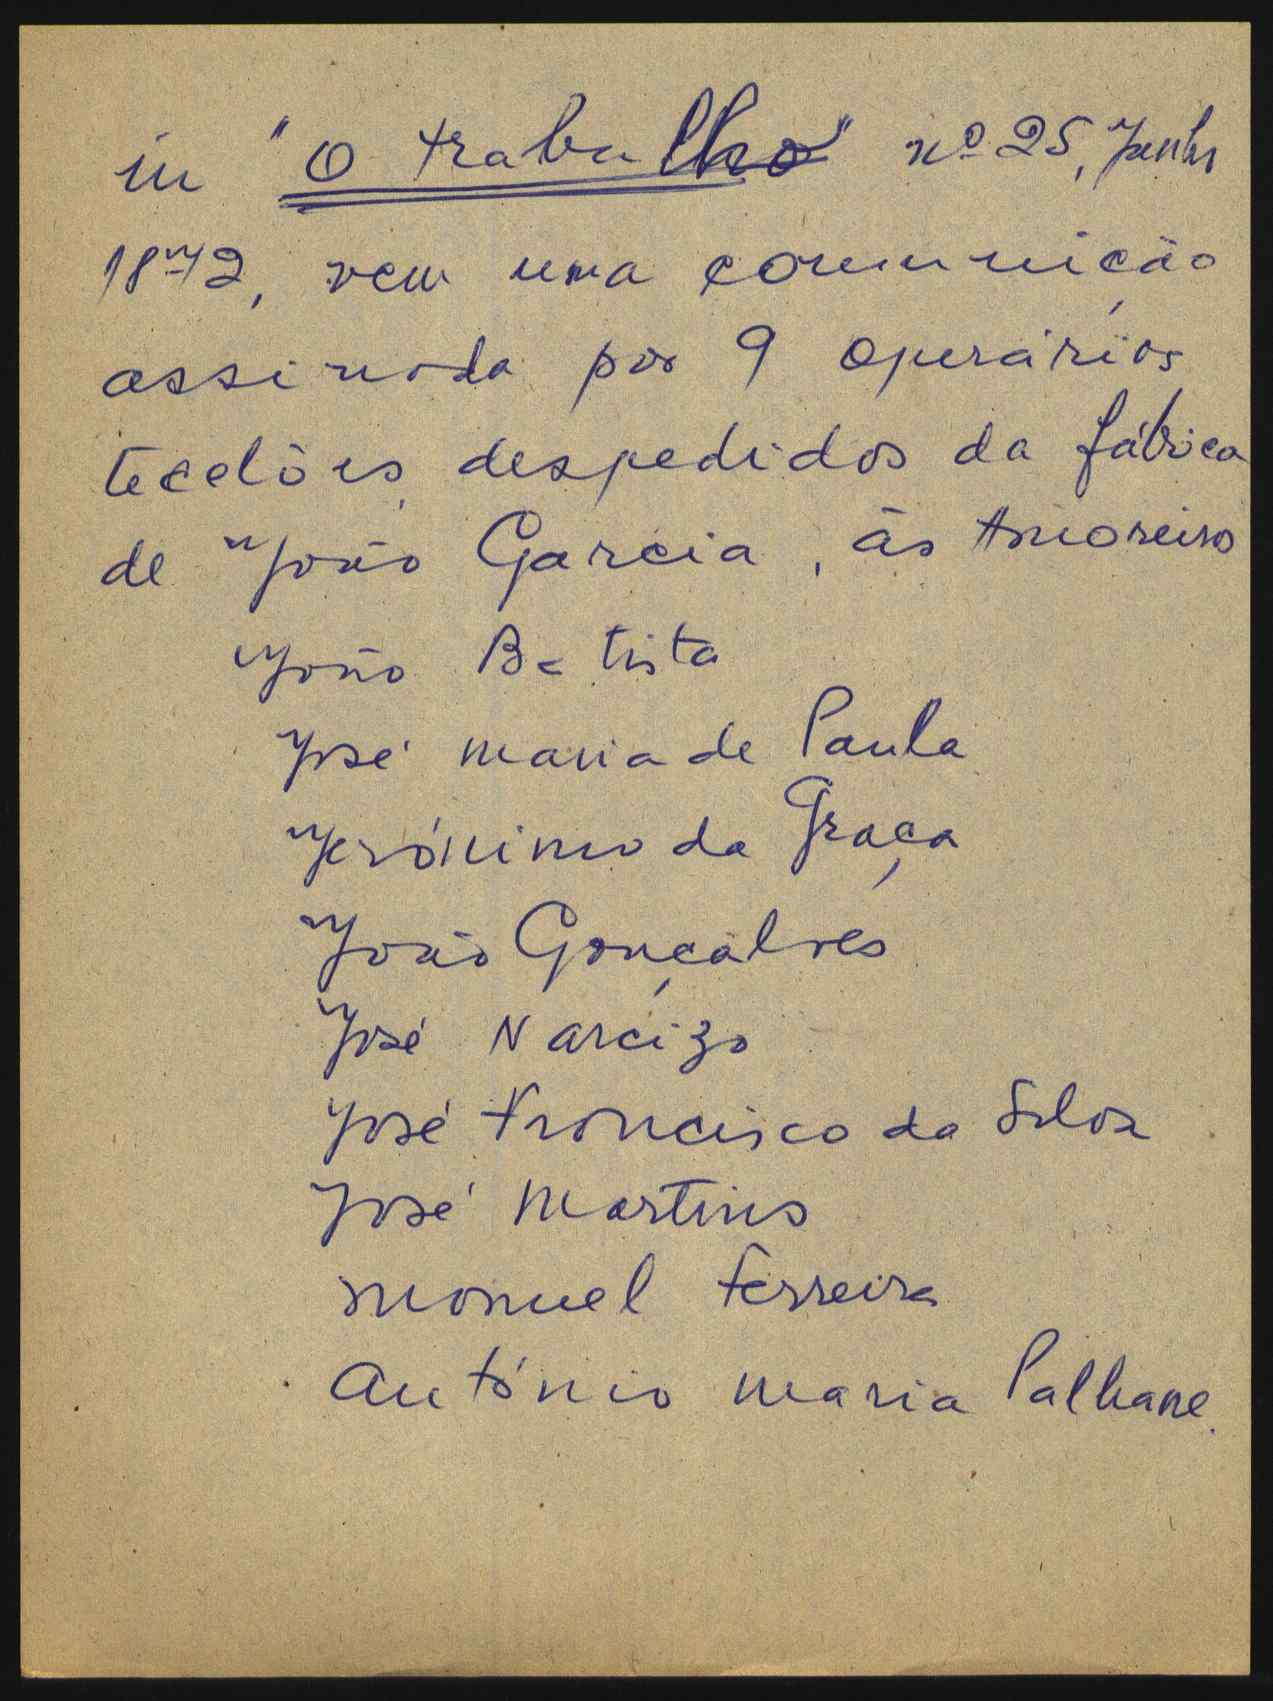 in "O trabalho" nº 25, Junho
1872, vem uma comunicão
assinada por 9 operários
tecelões despedidos da fábrica
de João Garcia, às Amoreiras
João Batista
José maria de Paula
Jerónimo da Graça
João Gonçalves
José Narcizo
José Francisco da Silva
José Martins
manuel Ferreira
António maria Palhare.